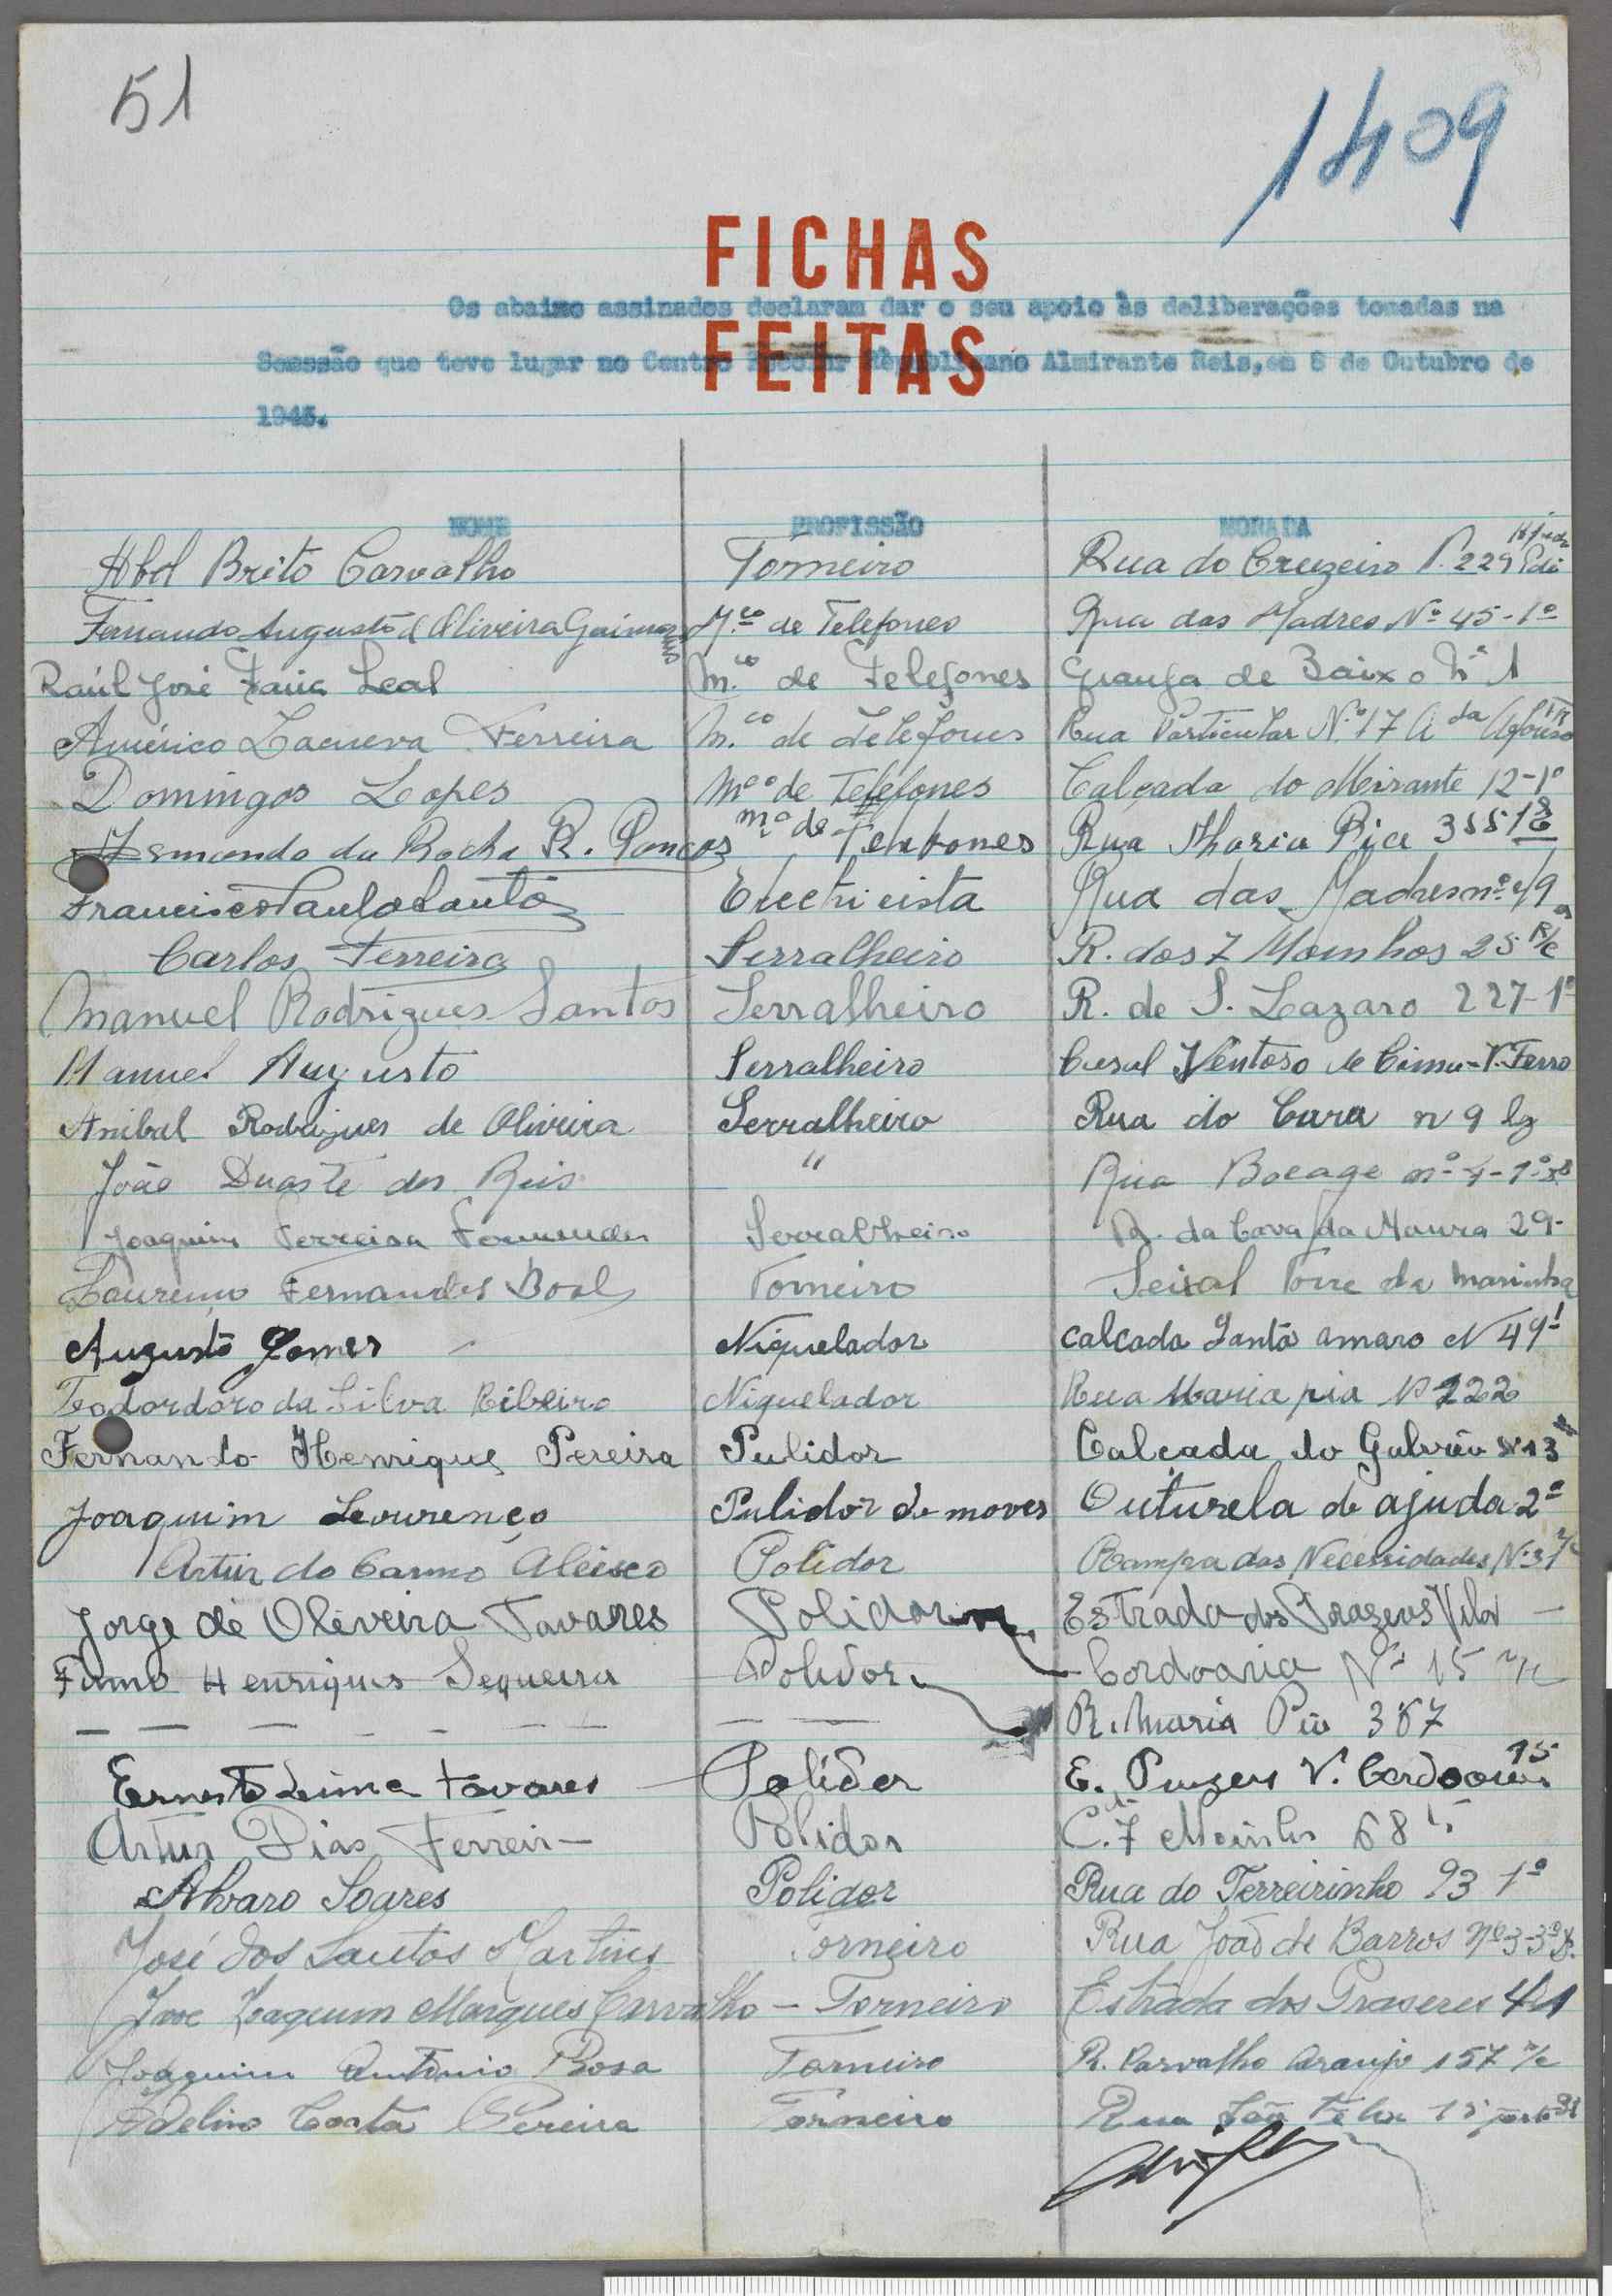 51
1409
FICHAS
Os abaixo assinados declaram dar o seu apoio às deliberações tomadas na
FEITAS
Sessão que teve lugar no Centro Escolar Republicano Almirante Reis, em 8 de Outubro de
1945.
NOME PROFISSÃO MORADA
Abel Brito Carvalho Torneiro Rua do Cruzeiro P. 229 Ajuda
Fernando Augusto d'Oliveira Guimarães M.co de Telefones Rua das Madres Nº 45-1º
Raúl José Faria Leal M.co de Telefones Granja de Baixo Nº 1
Américo Lacueva Ferreira M.co de Telefones Rua Particular N.º 17 A da Afonso
Domingos Lopes Mco de Telefones Calçada do Mirante 12-1º
da Rocha R. m.º de Telefones Rua Maria Pia 355
Francisco Paula Santos Electricista Rua das Madres nº 49
Carlos Ferreira Serralheiro R. dos 7 Moinhos 25 R/c
Manuel Rodrigues Santos Serralheiro R. de S. Lazaro 227-1º
Manuel Augusto Serralheiro Casal Ventoso de Cima-P. Ferro
Anibal Rodrigues de Oliveira Serralheiro Rua do Cura n 9 lg
João Duarte dos Reis " Rua Bocage nº 4-1º
Joaquim Ferreira Fernandes Serralheiro R. da Cova da Moura 29-
Laurenço Fernandes Boal Torneiro Seixal Torre da Marinha
Augusto Gomes Niquelador calcada Santo amaro N 49 1
Teodordoro da Silva Ribeiro Niquelador Rua Maria pia Nº 222
Fernando Henrique Pereira Pulidor Calçada do Galvão Nº 13
Joaquim Lourenço Pulidor de moves Outurela de ajuda 2º
Artur do Carmo Aleixo Polidor Rampa das Necessidades Nº 31 r/c
Jorge de Oliveira Tavares Polidor Estrada dos Prazeres Vila
Firmo Henriques Sequeira Polidor Cordoaria Nº 15 r/c
R. Maria Pia 367
Ernesto Lima Tavares Polidor E. Prazeres V. Cordoaria 15
Artur Dias Ferreir- Polidor C. 7 Moinhos 68
Alvaro Soares Polidor Rua do Terreirinho 93 1º
José dos Santos Martins Torneiro Rua João de Barros Nº 3-3º D.
Jose Joaquim Marques Carvalho - Torneiro Estrada dos Praseres 41
Joaquim Antonio Rosa Torneiro R. Carvalho Araujo 157 r/c
Adelino Costa Pereira Torneiro Rua 15